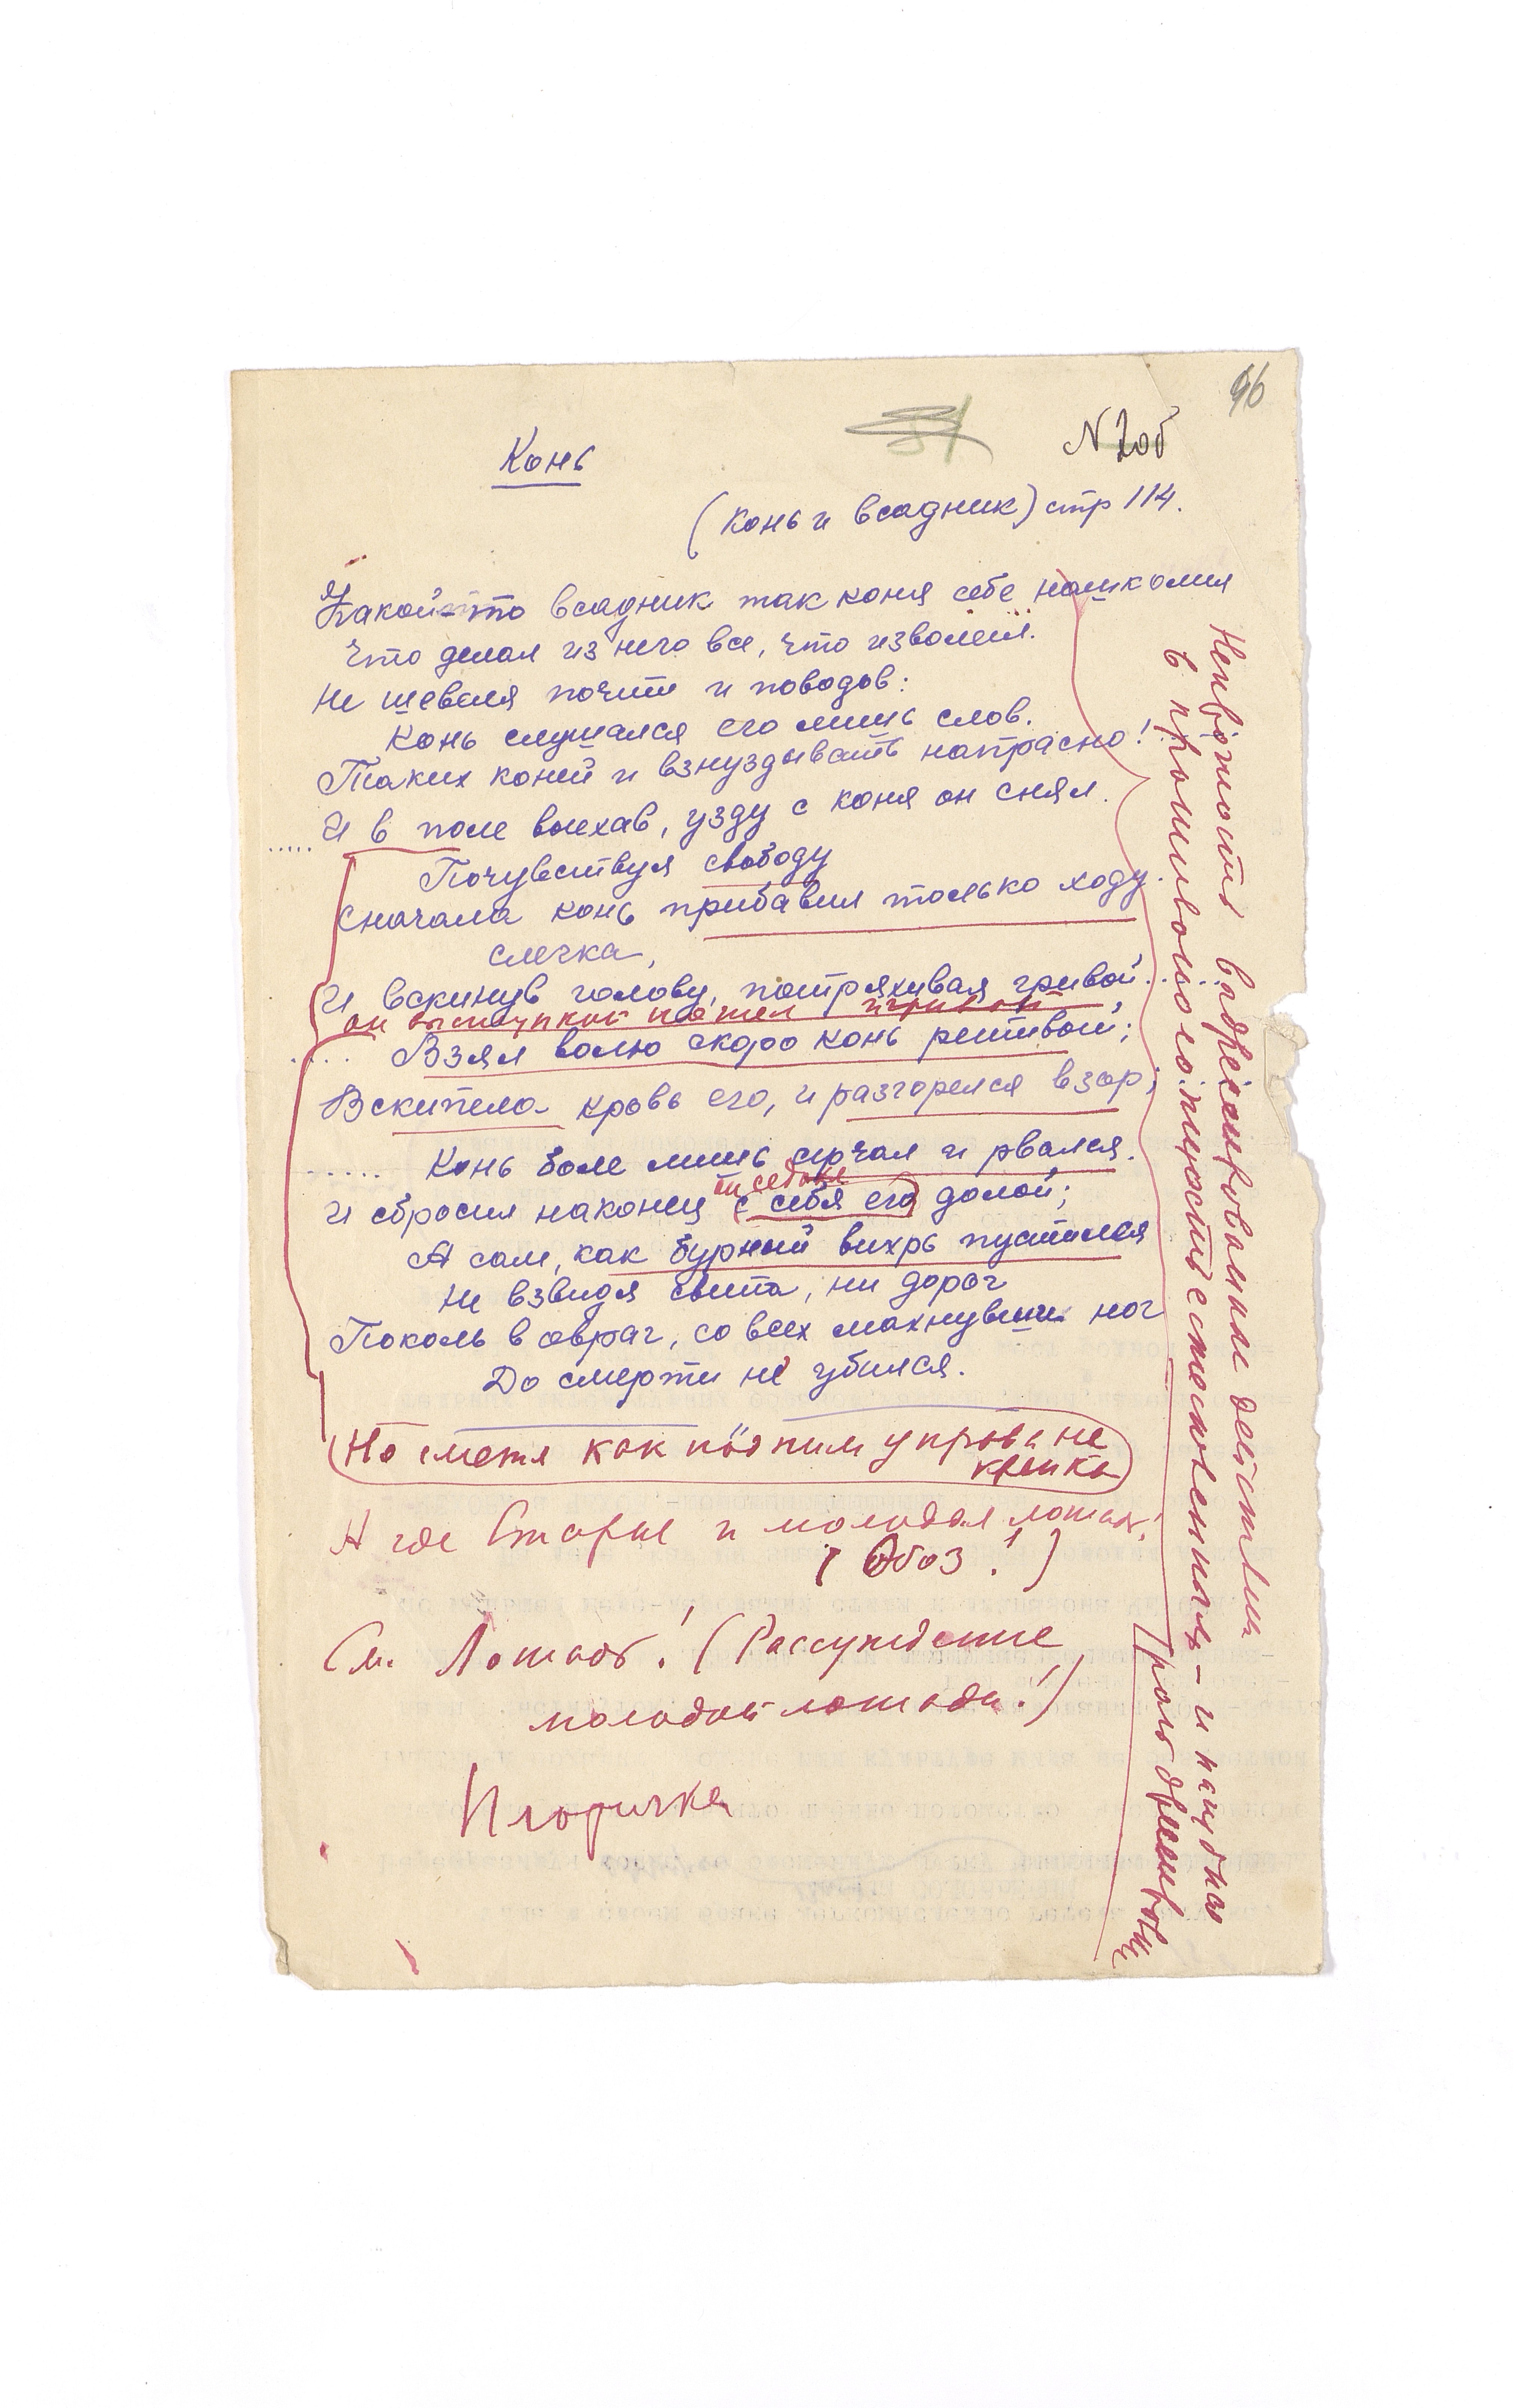 96
N 205
Конь
(Конь и всадник) стр 114.
Какой-то всадник так коня себе нашколил
Что делал из него все, что изволил.
Не шевеля почти и поводов:
Конь слушался его лишь слов.
Таких коней и взнуздывать напрасно!
..... И в поле выехав, узду с коня он снял.
Почувствуя свободу
Сначала конь прибавил только ходу
слегка,
И вскинув голову, потряхивая гривой.....
он выступкой пошел игривой,
.... Взял волю скоро конь ретивой;
Вскипела кровь его, и разгорелся взор;
...... Конь боле лишь серчал и рвался.
седока
И сбросил наконец с себя его долой;
А сам, как бурный вихрь пустился
Не взвидя света, ни дорог
Поколь в овраг, со всех махнувши ног
До смерти не убился.
Но сметя как под ним управа не
крепка
А где Старые и молодая лошадь!
(Обоз!)
См. Лошадь! (Рассуждение
молодой лошади!)
в
- и
роль дрессировки